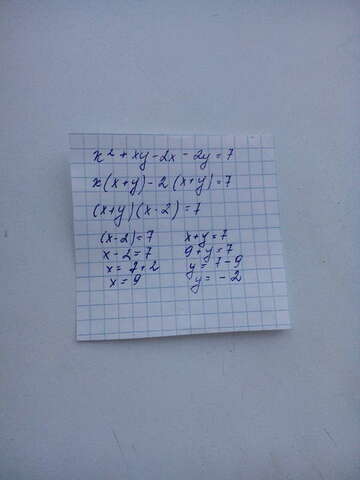 x² + xy - 2x - 2y = 7
x(x+y) - 2(x+y) = 7
(x+y)(x-2) = 7
(x-2) = 7
x - 2 = 7
x = 7 + 2
x = 9
x + y = 7
9 + y = 7
y = 7 - 9
y = - 2